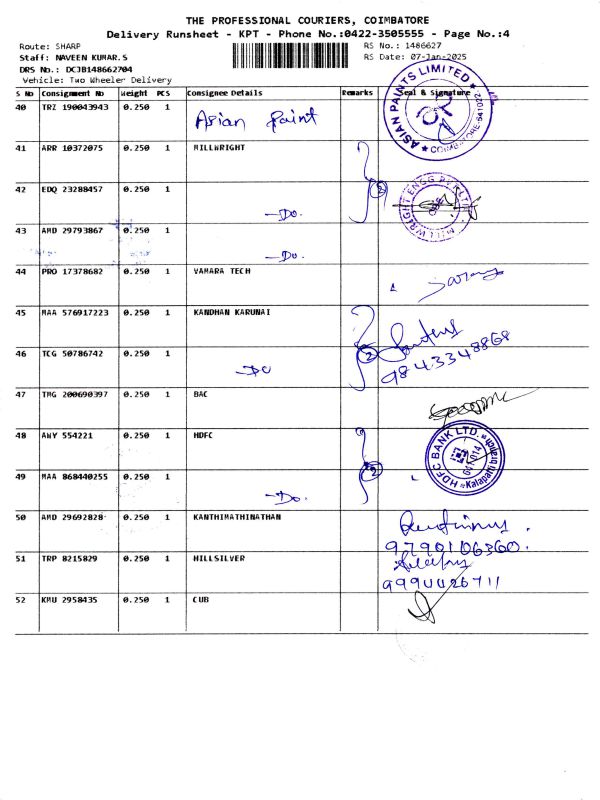 THE PROFESSIONAL COURIERS, COIMBATORE
Delivery Runsheet - KPT - Phone No.:0422-3505555 - Page No.:4
Route: SHARP
RS No.: 1486627
Staff: NAVEEN KUMAR.S
RS Date: 07-Jan-2025
DRS No.: DCJB148662704
Vehicle: Two Wheeler Delivery
S No Consignment No Weight PCS Consignee Details Remarks Seal & Signature
40 TRZ 190043943 0.250 1 Asian Paint
ASIAN PAINTS LIMITED ★ COIMBATORE-641022
41 ARR 10372075 0.250 1 MILLWRIGHT
42 EDQ 23288457 0.250 1 -Do.
MILLWRIGHT ENGG PVT LTD
43 AMD 29793867 0.250 1 -Do.
44 PRO 17378682 0.250 1 VAMARA TECH
45 MAA 576917223 0.250 1 KANDHAN KARUNAI
46 TCG 50786742 0.250 1 -Do 2 9843348868
47 TMG 200690397 0.250 1 BAC
48 AWY 554221 0.250 1 HDFC
HDFC BANK LTD. ★ Kalapatti branch ★ 641014
49 MAA 868440255 0.250 1 -Do. 2
50 AMD 29692828 0.250 1 KANTHIMATHINATHAN
9790106360.
51 TRP 8215829 0.250 1 HILLSILVER
9994426711
52 KMU 2958435 0.250 1 CUB